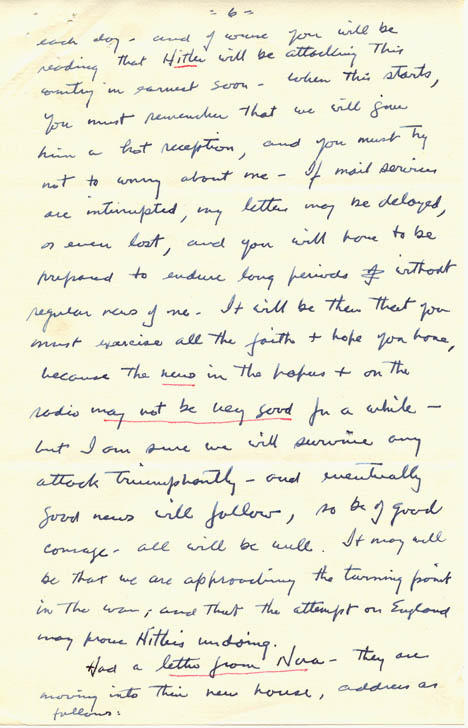 = 6 =
each day - and of course you will be
reading that Hitler will be attacking this
country in earnest soon - when this starts,
you must remember that we will give
him a hot reception, and you must try
not to worry about me - If mail services
are interrupted, my letters may be delayed,
or even lost, and you will have to be
prepared to endure long periods without
regular news of me - It will be then that you
must exercise all the faith + hope you have,
because the news in the papers + on the
radio may not be very good for a while -
but I am sure we will survive any
attack triumphantly - and eventually
good news will follow, so be of good
courage - all will be well. It may well
be that we are approaching the turning point
in the war, and that the attempt on England
may prove Hitler's undoing.
Had a letter from Nora - they are
moving into their new house, address as
follows: